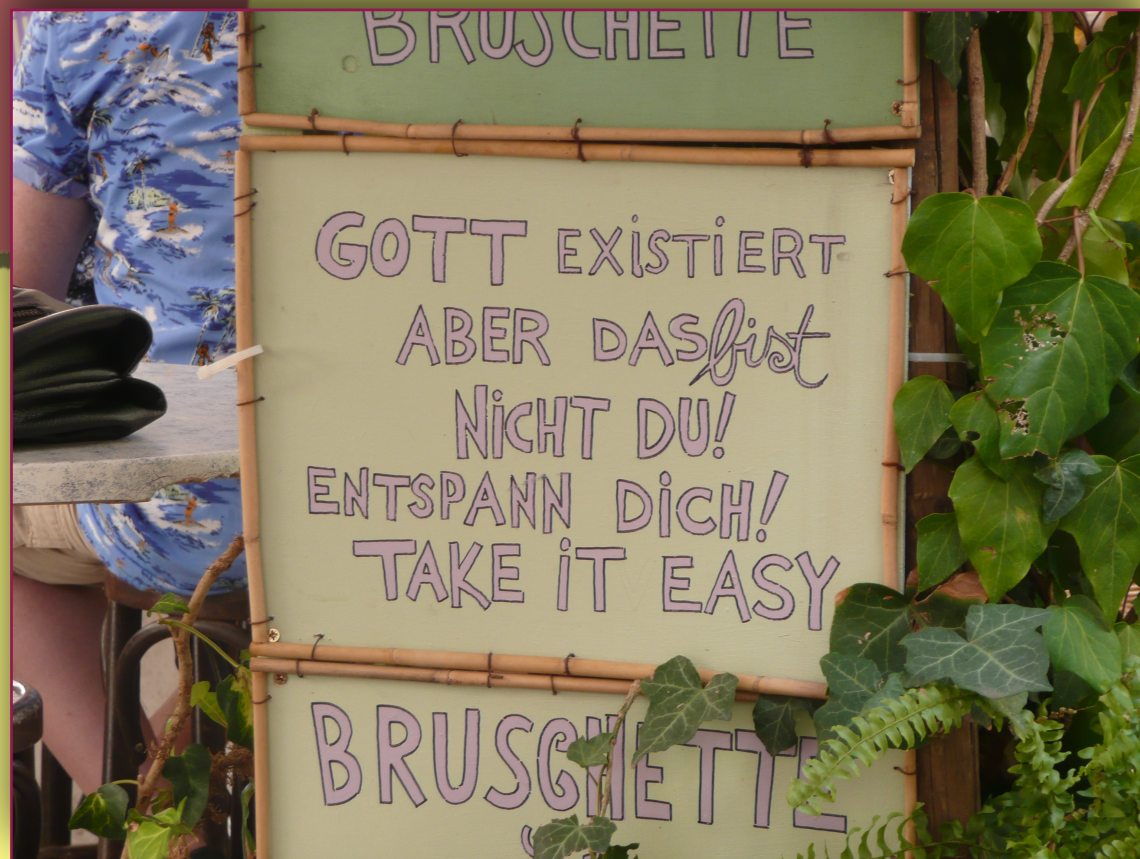 BRUSCHETTE
GOTT EXISTIERT
ABER DAS bist
NiCHT DU!
ENTSPANN DiCH!
TAKE iT EASY
BRUSCHETTE